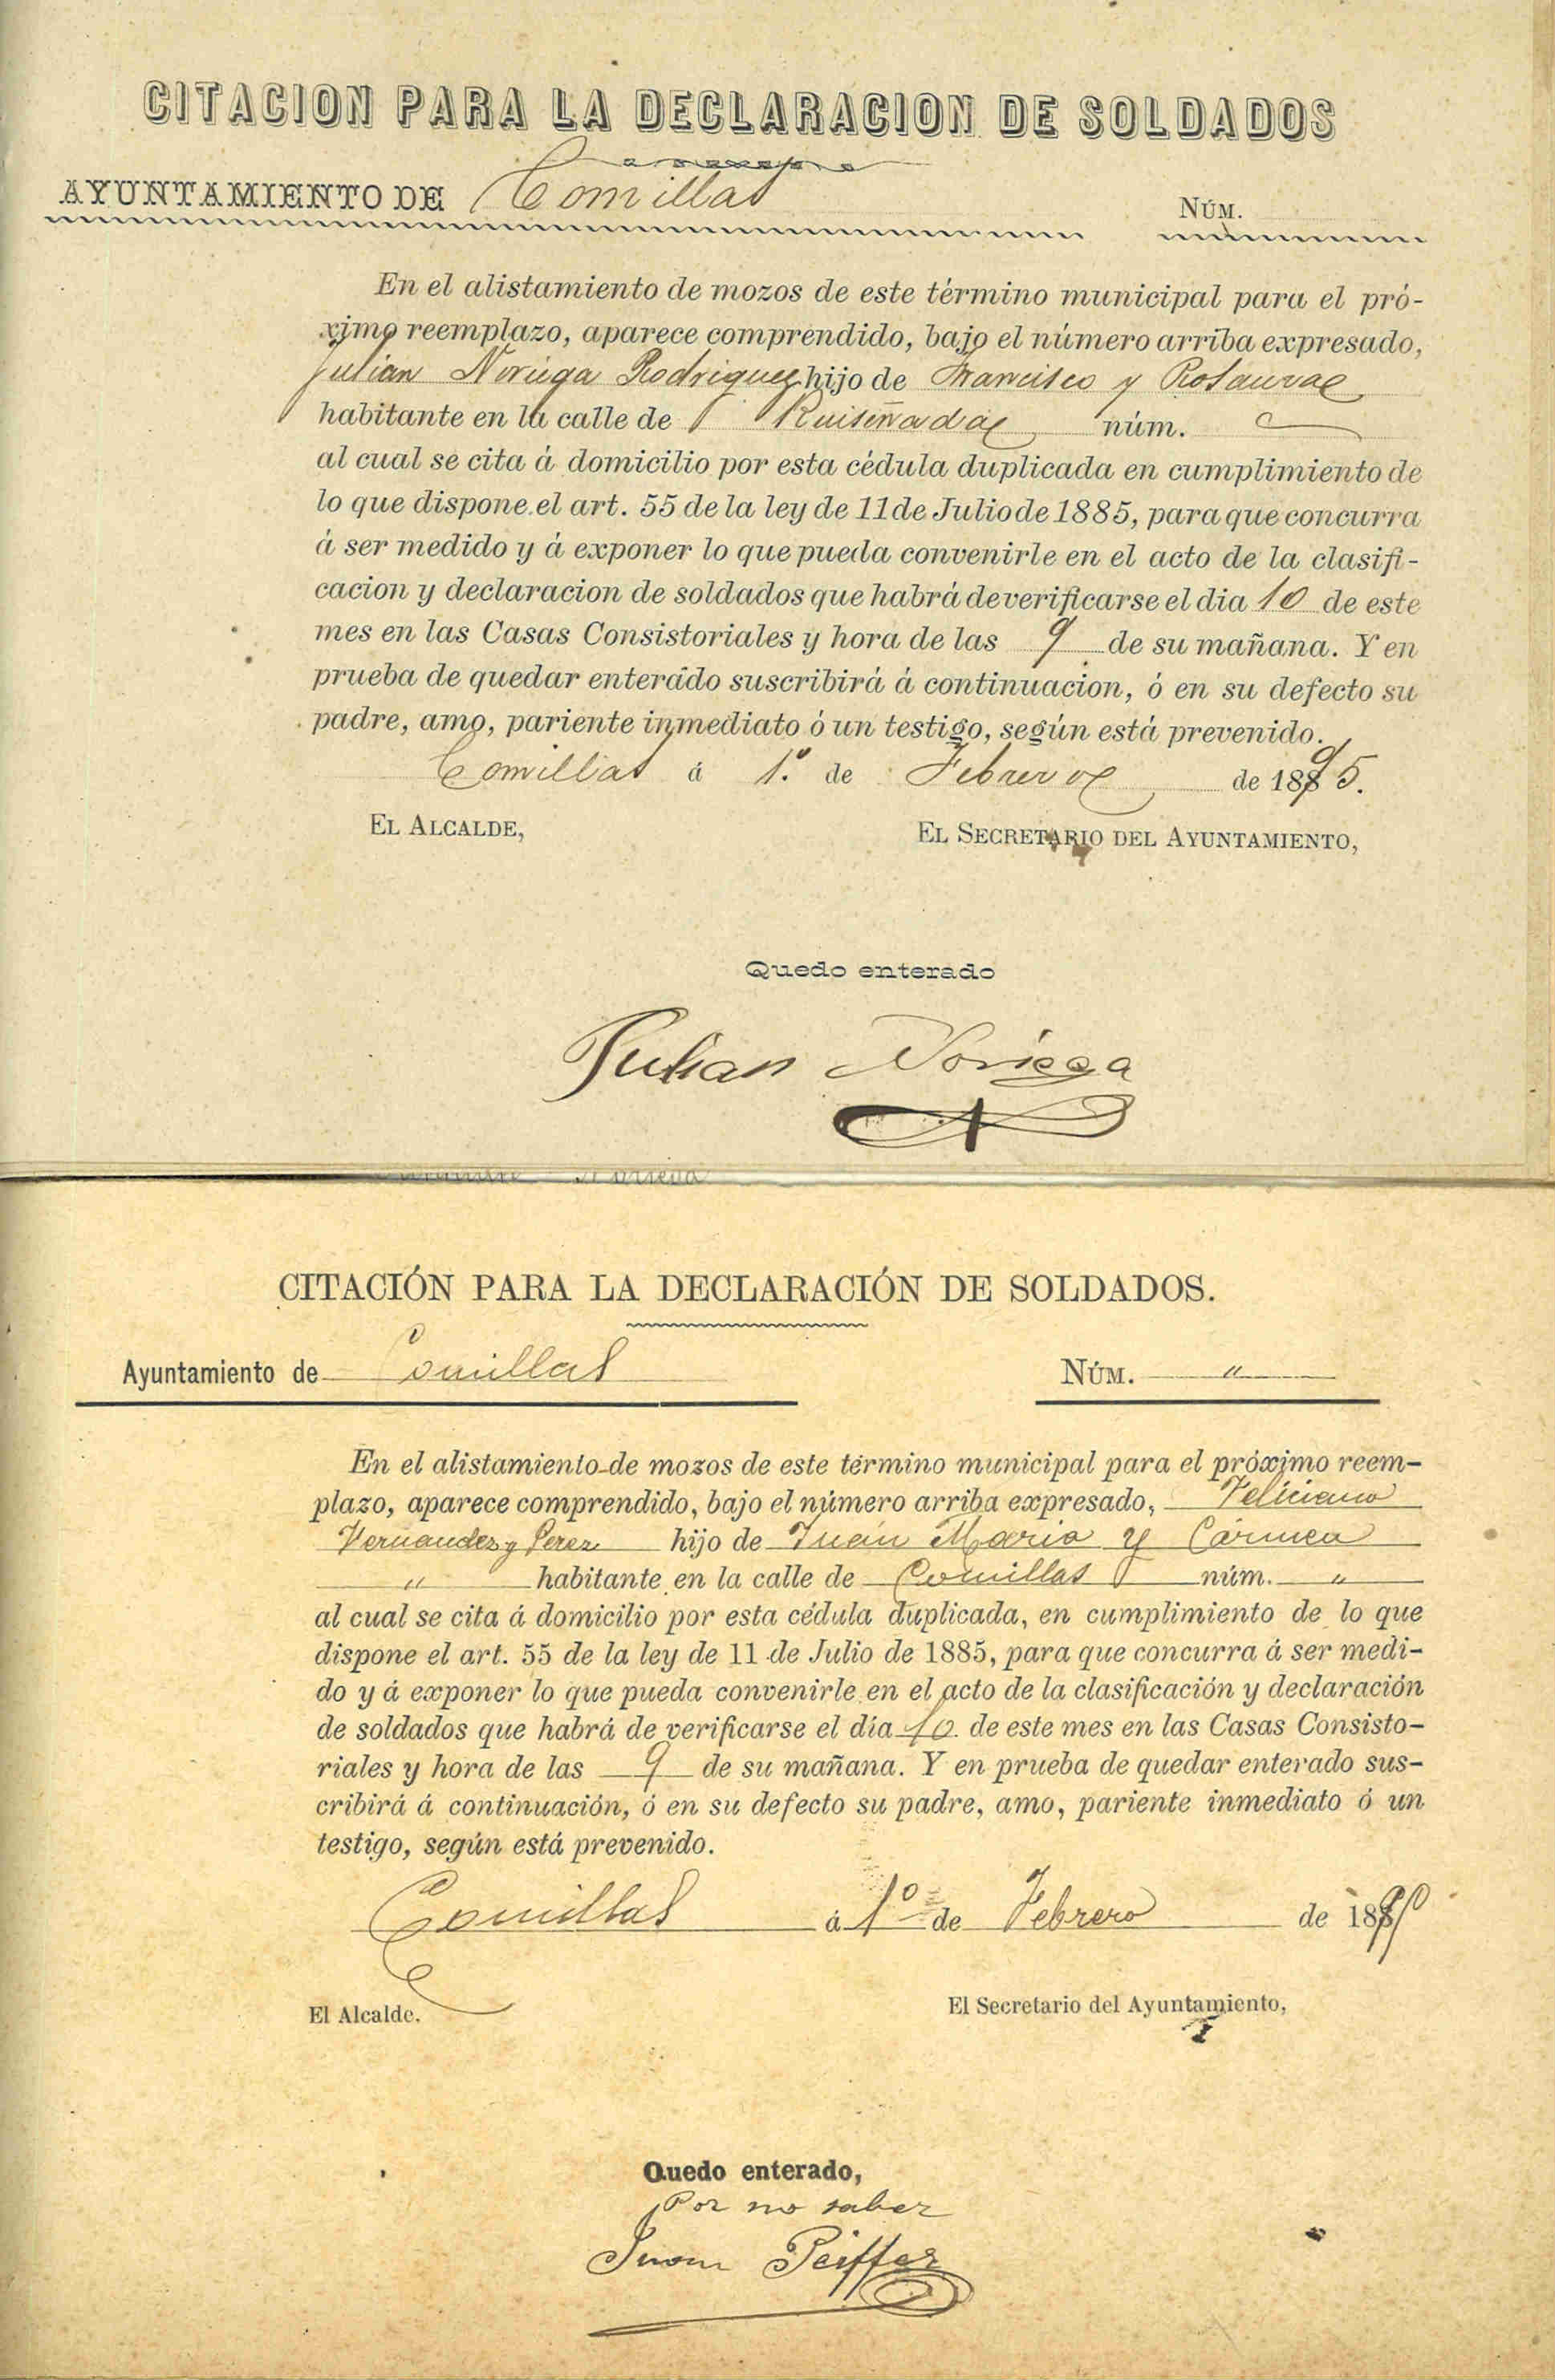 CITACION PARA LA DECLARACION DE SOLDADOS
AYUNTAMIENTO DE Comillas NÚM.
En el alistamiento de mozos de este término municipal para el pró-
ximo reemplazo, aparece comprendido, bajo el número arriba expresado,
Julian Noriega Rodriguez hijo de Francisco y Rosaura
habitante en la calle de Ruiseñada núm.
al cual se cita á domicilio por esta cédula duplicada en cumplimiento de
lo que dispone el art. 55 de la ley de 11 de Julio de 1885, para que concurra
á ser medido y á exponer lo que pueda convenirle en el acto de la clasifi-
cacion y declaracion de soldados que habrá de verificarse el dia 10 de este
mes en las Casas Consistoriales y hora de las 9 de su mañana. Y en
prueba de quedar enterádo suscribirá á continuacion, ó en su defecto su
padre, amo, pariente inmediato ó un testigo, según está prevenido.
Comillas á 1.º de Febrero de 1895.
EL ALCALDE, EL SECRETARIO DEL AYUNTAMIENTO,
Quedo enterado
Julian Noriega
CITACIÓN PARA LA DECLARACIÓN DE SOLDADOS.
Ayuntamiento de Comillas NÚM. "
En el alistamiento de mozos de este término municipal para el próximo reem-
plazo, aparece comprendido, bajo el número arriba expresado, Feliciano
Fernandez y Perez hijo de Juan Maria y Cármen
" habitante en la calle de Comillas núm. "
al cual se cita á domicilio por esta cédula duplicada, en cumplimiento de lo que
dispone el art. 55 de la ley de 11 de Julio de 1885, para que concurra á ser medi-
do y á exponer lo que pueda convenirle en el acto de la clasificación y declaración
de soldados que habrá de verificarse el día 10 de este mes en las Casas Consisto-
riales y hora de las 9 de su mañana. Y en prueba de quedar enterado sus-
cribirá á continuación, ó en su defecto su padre, amo, pariente inmediato ó un
testigo, según está prevenido.
Comillas á 1º de Febrero de
El Alcalde. El Secretario del Ayuntamiento,
Quedo enterado,
Por no saber
Juan Peiffer